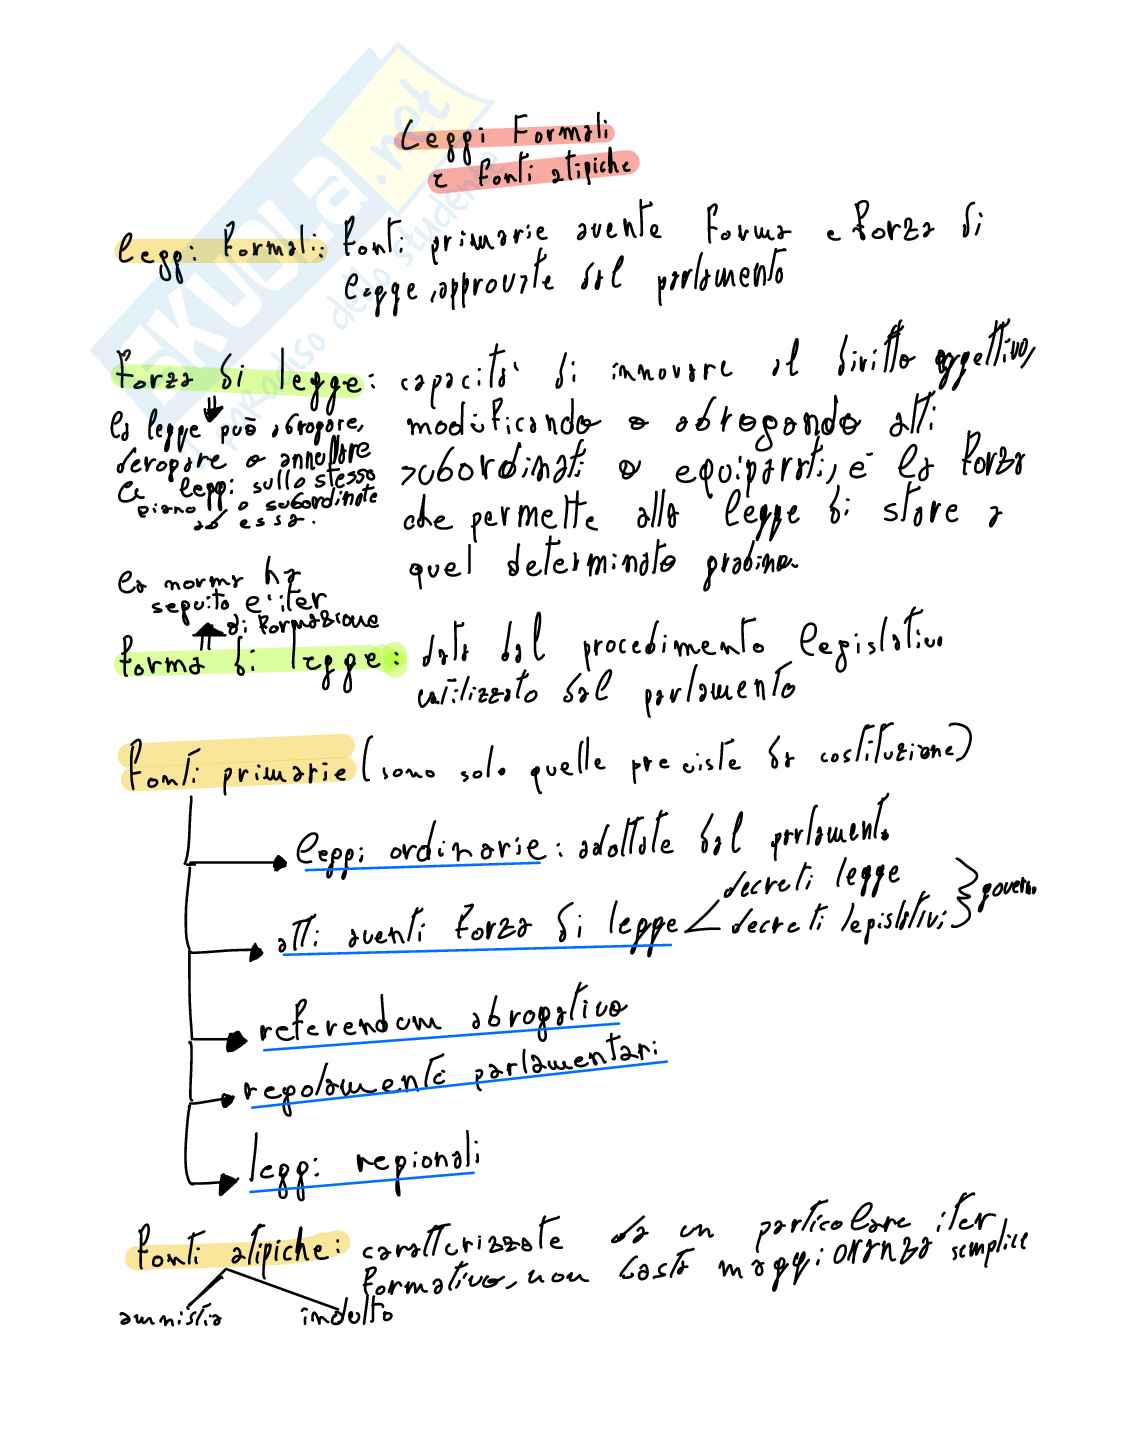 SKUOLA.net
paradiso dello studente
Leggi Formali
e fonti atipiche
leggi formali: fonti primarie avente forma e forza di
legge, approvate dal parlamento
forza di legge: capacità di innovare il diritto oggettivo,
modificando o abrogando atti
subordinati o equiparati, è la forza
che permette alla legge di stare a
quel determinato gradino
la legge può abrogare,
derogare o annullare
le leggi sullo stesso
piano o subordinate
ad essa.
la norma ha
seguito l'iter
di formazione
forma di legge: data dal procedimento legislativo
utilizzato dal parlamento
fonti primarie (sono solo quelle previste da costituzione)
leggi ordinarie: adottate dal parlamento
atti aventi forza di legge
decreti legge
decreti legislativi
governo
referendum abrogativo
regolamenti parlamentari
leggi regionali
fonti atipiche: caratterizzate da un particolare iter
formativo, non basta maggioranza semplice
amnistia indulto